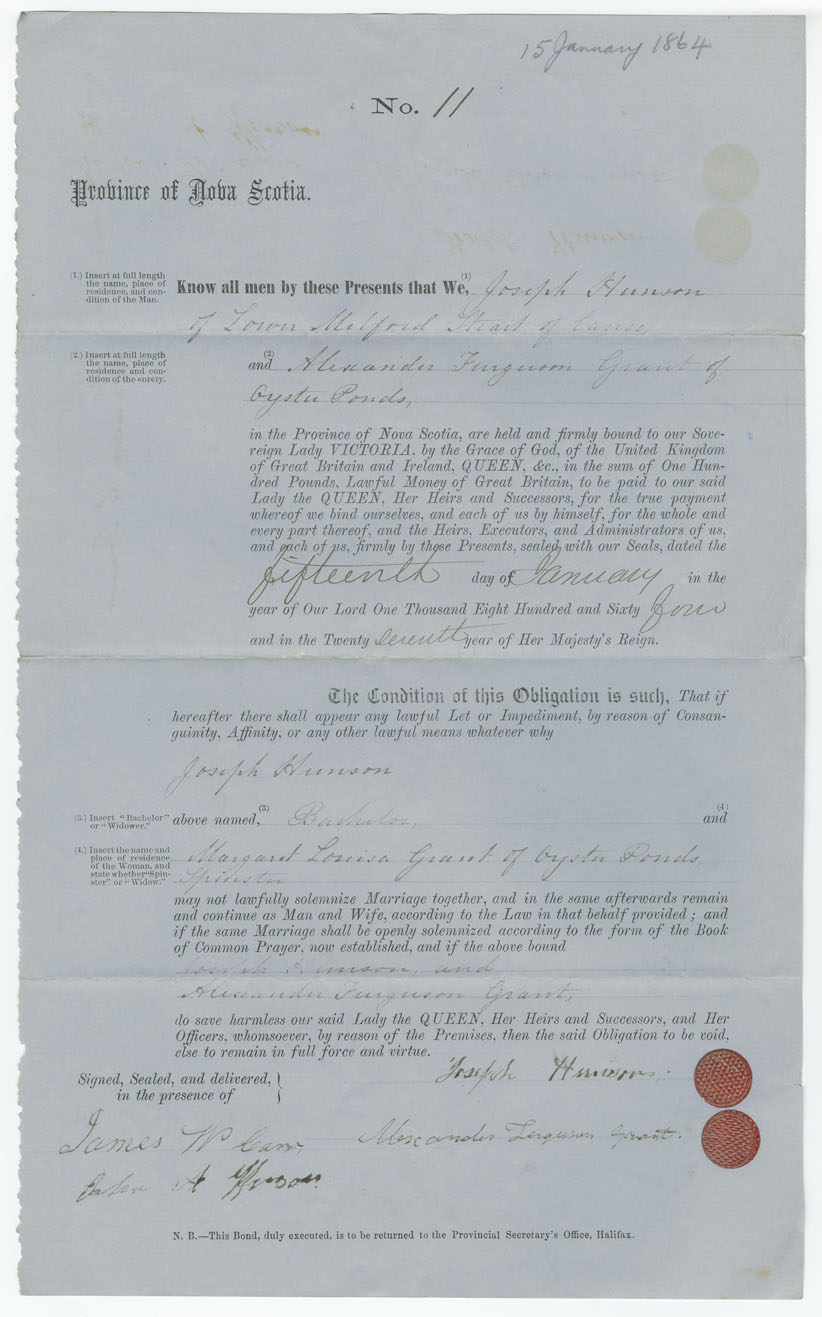 15 January 1864
No. 11
Province of Nova Scotia.
(1.) Insert at full length
the name, place of
residence, and con-
dition of the Man.
Know all men by these Presents that We, (1) Joseph Hunson
of Lower Milford Strait of Canso,
(2.) Insert at full length
the name, place of
residence and con-
dition of the surety.
and (2) Alexander Ferguson Grant of
Oyster Ponds,
in the Province of Nova Scotia, are held and firmly bound to our Sove-
reign Lady VICTORIA, by the Grace of God, of the United Kingdom
of Great Britain and Ireland, QUEEN, &c., in the sum of One Hun-
dred Pounds, Lawful Money of Great Britain, to be paid to our said
Lady the QUEEN, Her Heirs and Successors, for the true payment
whereof we bind ourselves, and each of us by himself, for the whole and
every part thereof, and the Heirs, Executors, and Administrators of us,
and each of us, firmly by these Presents, sealed with our Seals, dated the
fifteenth day of January in the
year of Our Lord One Thousand Eight Hundred and Sixty four
and in the Twenty seventh year of Her Majesty's Reign.
The Condition of this Obligation is such, That if
hereafter there shall appear any lawful Let or Impediment, by reason of Consan-
guinity, Affinity, or any other lawful means whatever why
Joseph Hunson
(3.) Insert "Bachelor"
or "Widower."
above named, (3) Bachelor, and (4)
(4.) Insert the name and
place of residence
of the Woman, and
state whether "Spin-
ster" or "Widow."
Margaret Louisa Grant of Oyster Ponds,
Spinster
may not lawfully solemnize Marriage together, and in the same afterwards remain
and continue as Man and Wife, according to the Law in that behalf provided; and
if the same Marriage shall be openly solemnized according to the form of the Book
of Common Prayer, now established, and if the above bound
Joseph Hunson, and
Alexander Ferguson Grant,
do save harmless our said Lady the QUEEN, Her Heirs and Successors, and Her
Officers, whomsoever, by reason of the Premises, then the said Obligation to be void,
else to remain in full force and virtue.
Signed, Sealed, and delivered,
in the presence of
Joseph
James W
Alexander Ferguson Grant.
A
N. B.—This Bond, duly executed, is to be returned to the Provincial Secretary's Office, Halifax.